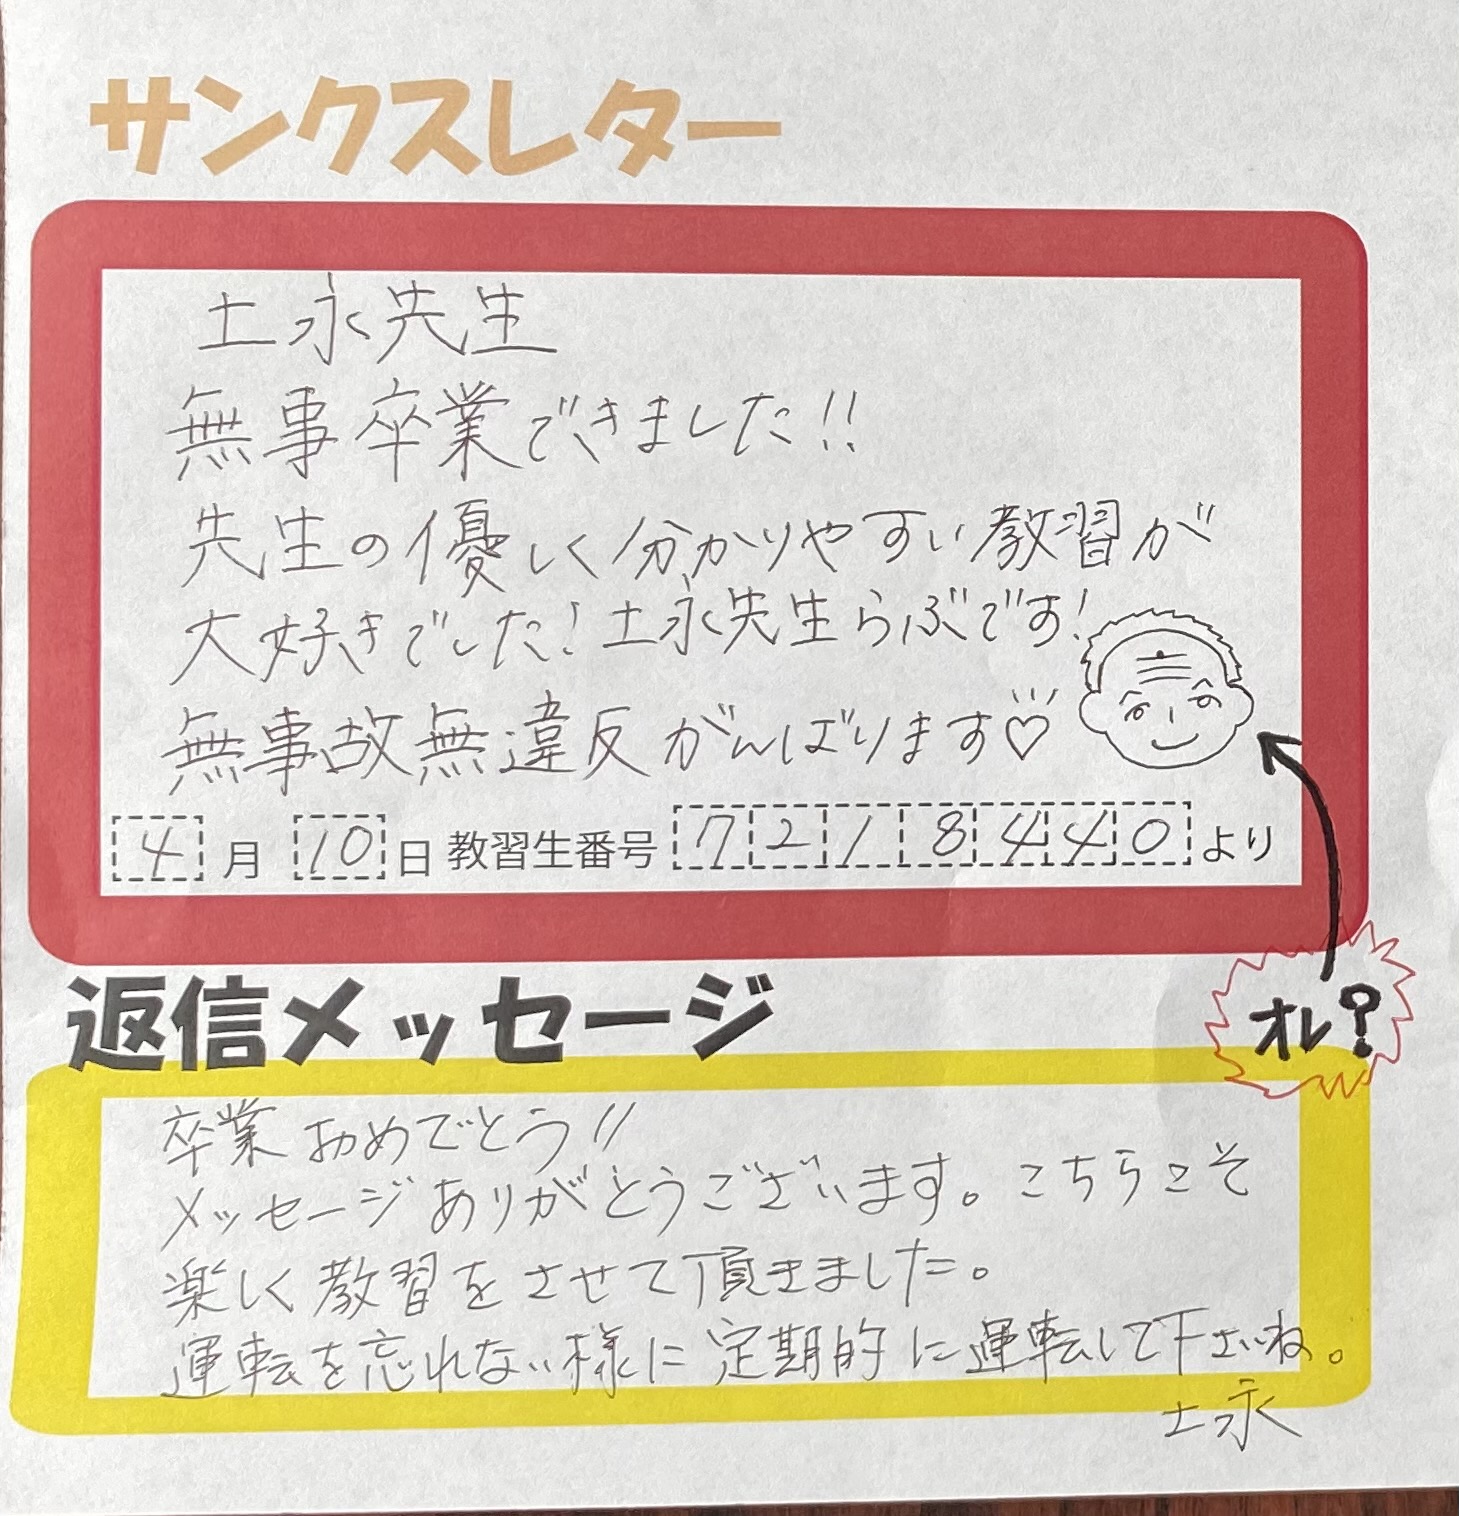 サンクスレター
土永先生
無事卒業できました!!
先生の優しく分かりやすい教習が
大好きでした!土永先生らぶです!
無事故無違反がんばります♡
4月10日教習生番号7218440より
オレ?
返信メッセージ
卒業おめでとう!!
メッセージありがとうございます。こちらこそ
楽しく教習をさせて頂きました。
運転を忘れない様に定期的に運転して下さいね。
土永